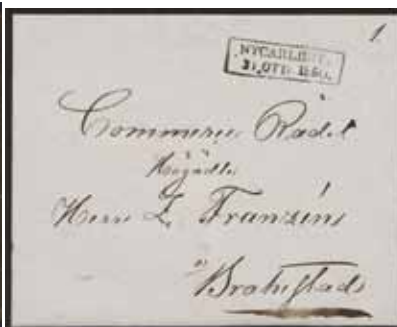 1.
NYCARLEBY.
31.OCT. 1850.
Commerce Rådet
Högädle
Herr Z. Franzéns
Brahestad